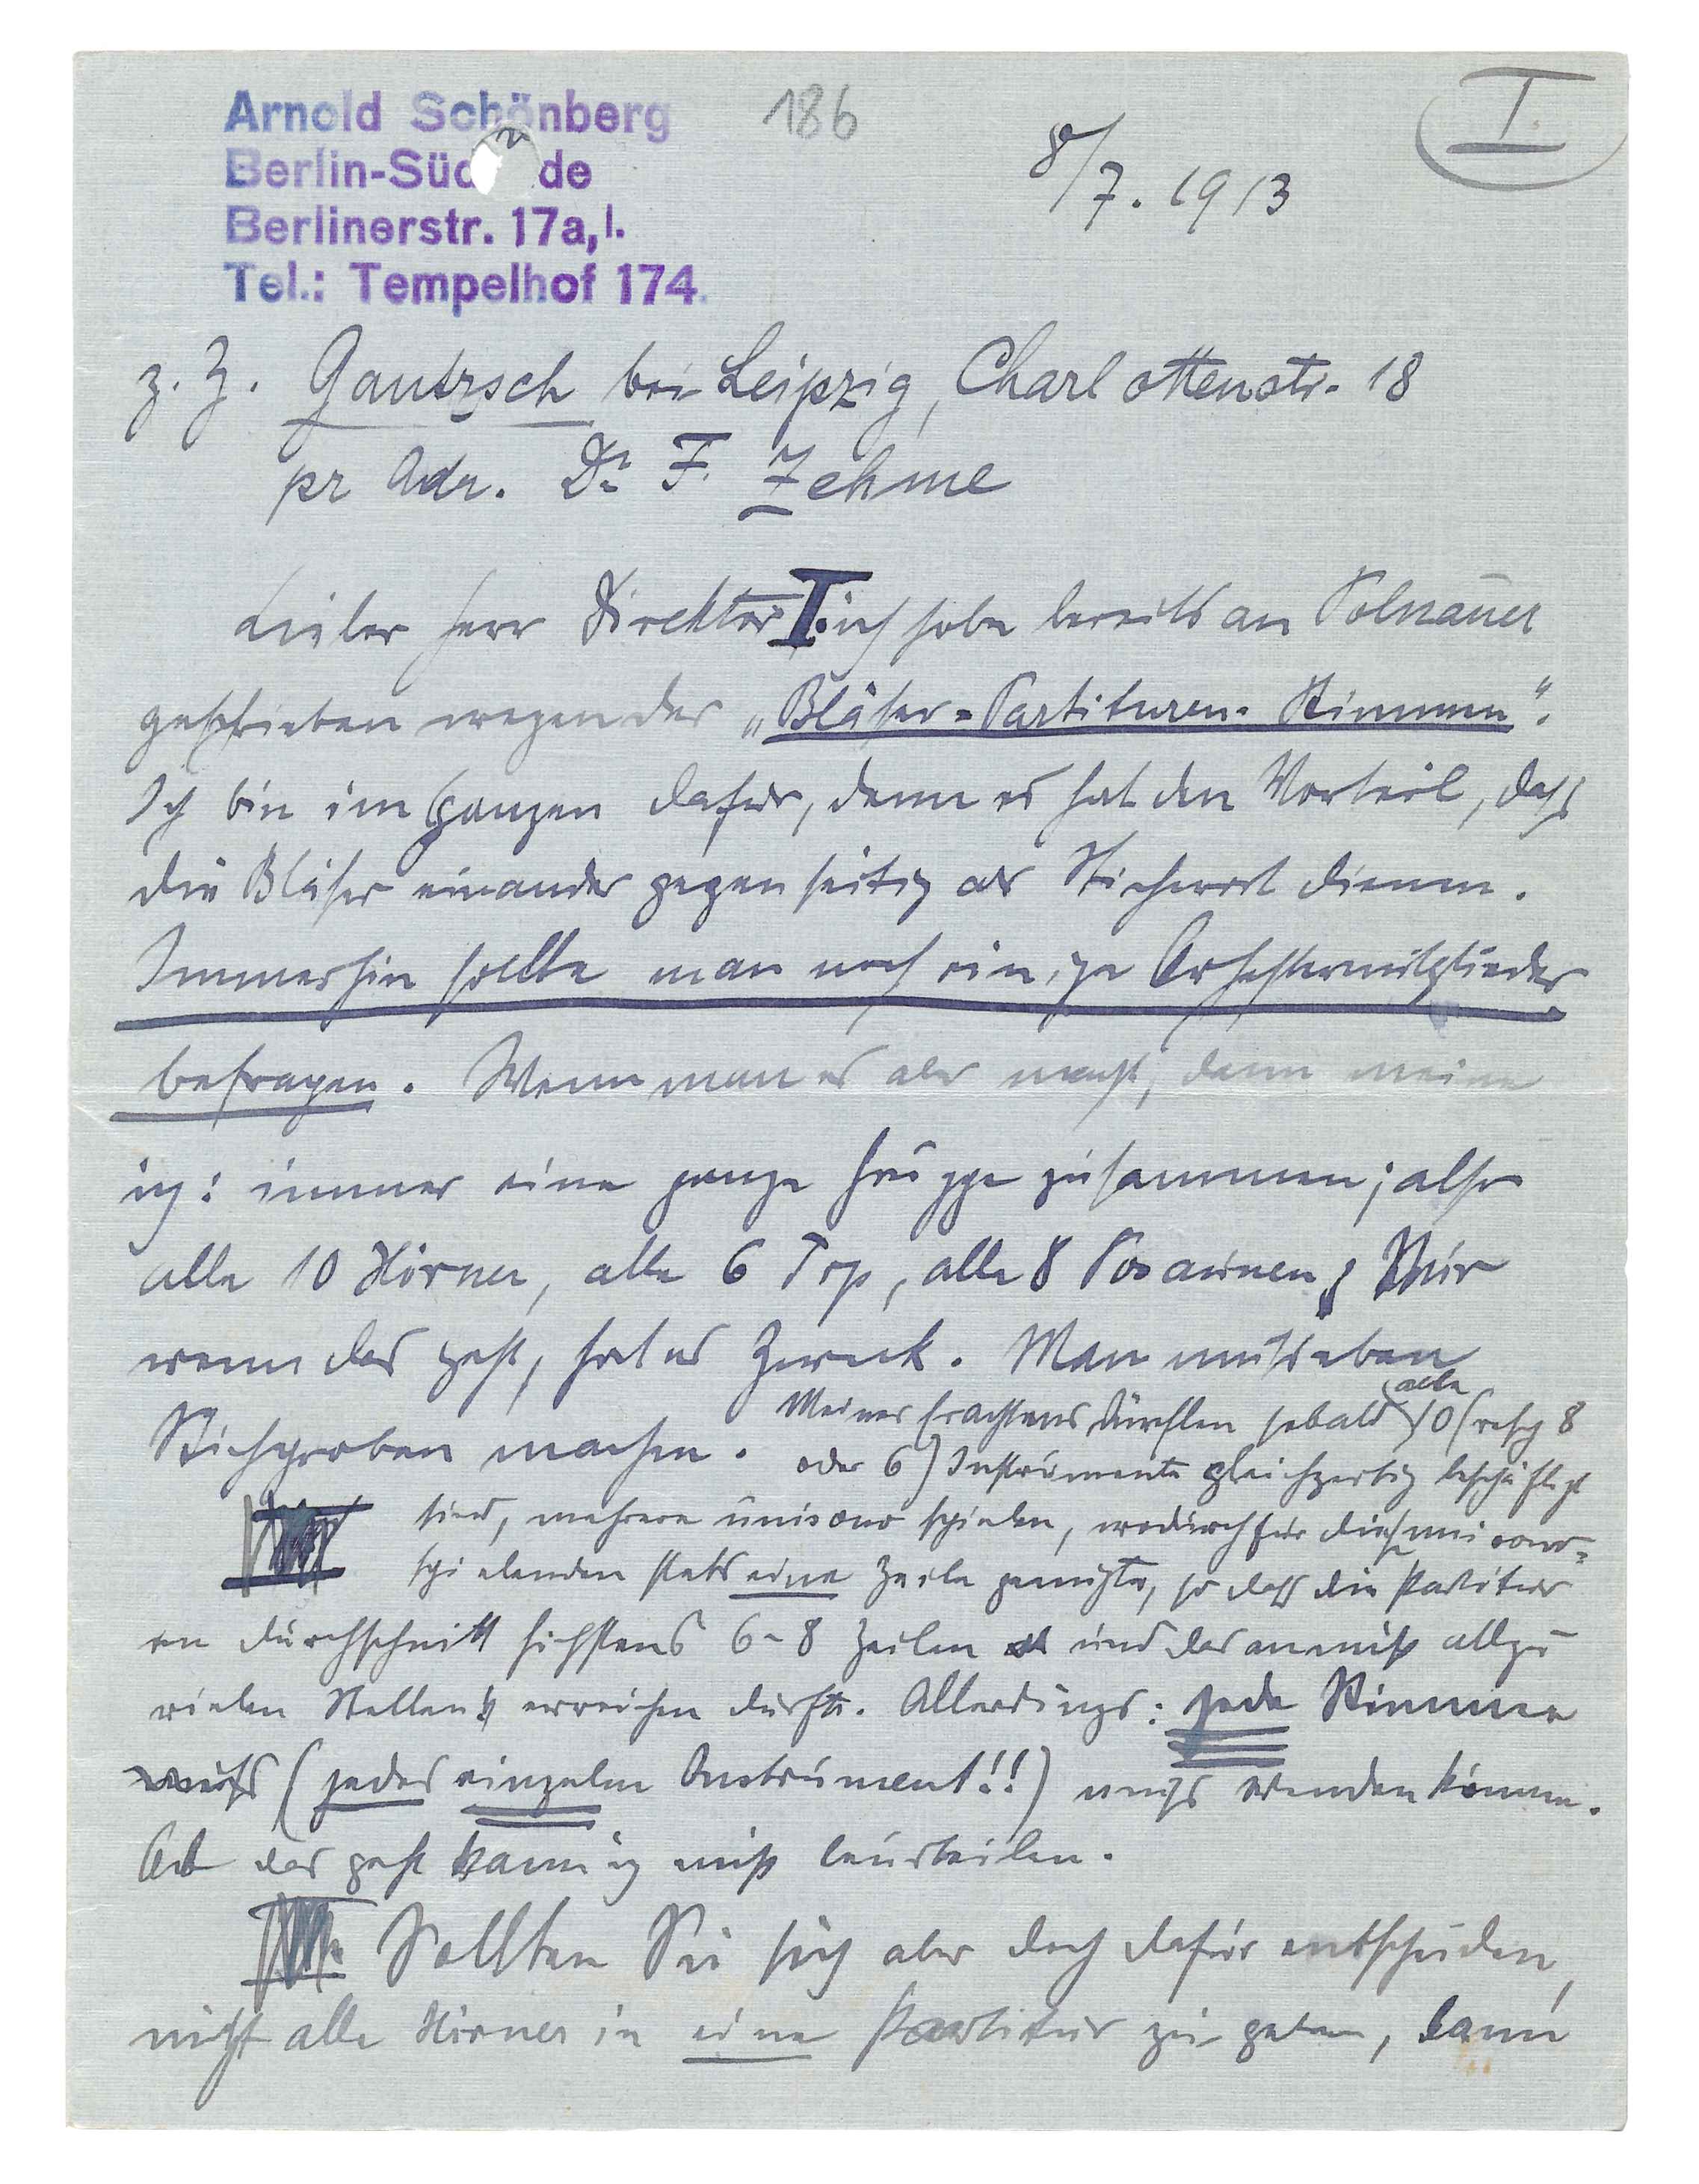 Arnold Schönberg
186
I
Berlin-Süd de
8/7. 1913
Berlinerstr. 17a, I.
Tel.: Tempelhof 174.
z. Z. Gautzsch bei Leipzig, Charlottenstr. 18
pr Adr. Dr F. Zehme
Lieber Herr Direktor I. ich habe bereits an Polnauer
geschrieben wegen der „Bläser-Partituren-Stimmen".
Ich bin im Ganzen dafür, denn es hat den Vorteil, dass
die Bläser einander gegenseitig als Stichwort dienen.
Immerhin sollte man noch einige Orchestermitglieder
befragen. Wenn man es aber macht, dann meine
ich: immer eine ganze Gruppe zusammen; also
alle 10 Hörner, alle 6 Trp, alle 8 Posaunen; Nur
wenn das geht, hat es Zweck. Man muss eben
Stichproben machen. Meines Erachtens dürften sobald alle 10 (resp 8
oder 6) Instrumente gleichzeitig beschäftigt
sind, mehrere unisono spielen, wodurch für die unisono-
spielenden stets eine Zeile genügte, so dass die Partitur
im Durchschnitt höchstens 6-8 Zeilen und das an nicht allzu
vielen Stellen erreichen dürfte. Allerdings: jede Stimme
muss (jedes einzelne Instrument!!) muss wenden können.
Ob das geht kann ich nicht beurteilen.
Sollten Sie sich aber doch dafür entscheiden,
nicht alle Hörner in eine Partitur zu geben, dann